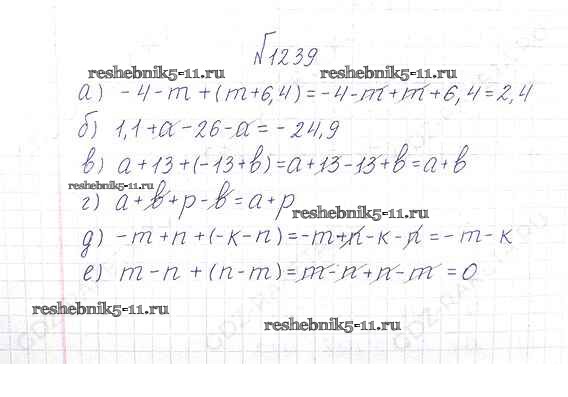 №1239
reshebnik5-11.ru reshebnik5-11.ru
а) -4-m+(m+6,4)=-4-m+m+6,4=2,4
б) 1,1+a-26-a=-24,9
в) a+13+(-13+b)=a+13-13+b=a+b
reshebnik5-11.ru
г) a+b+p-b=a+p
reshebnik5-11.ru
д) -m+n+(-k-n)=-m+n-k-n=-m-k
е) m-n+(n-m)=m-n+n-m=0
reshebnik5-11.ru
reshebnik5-11.ru